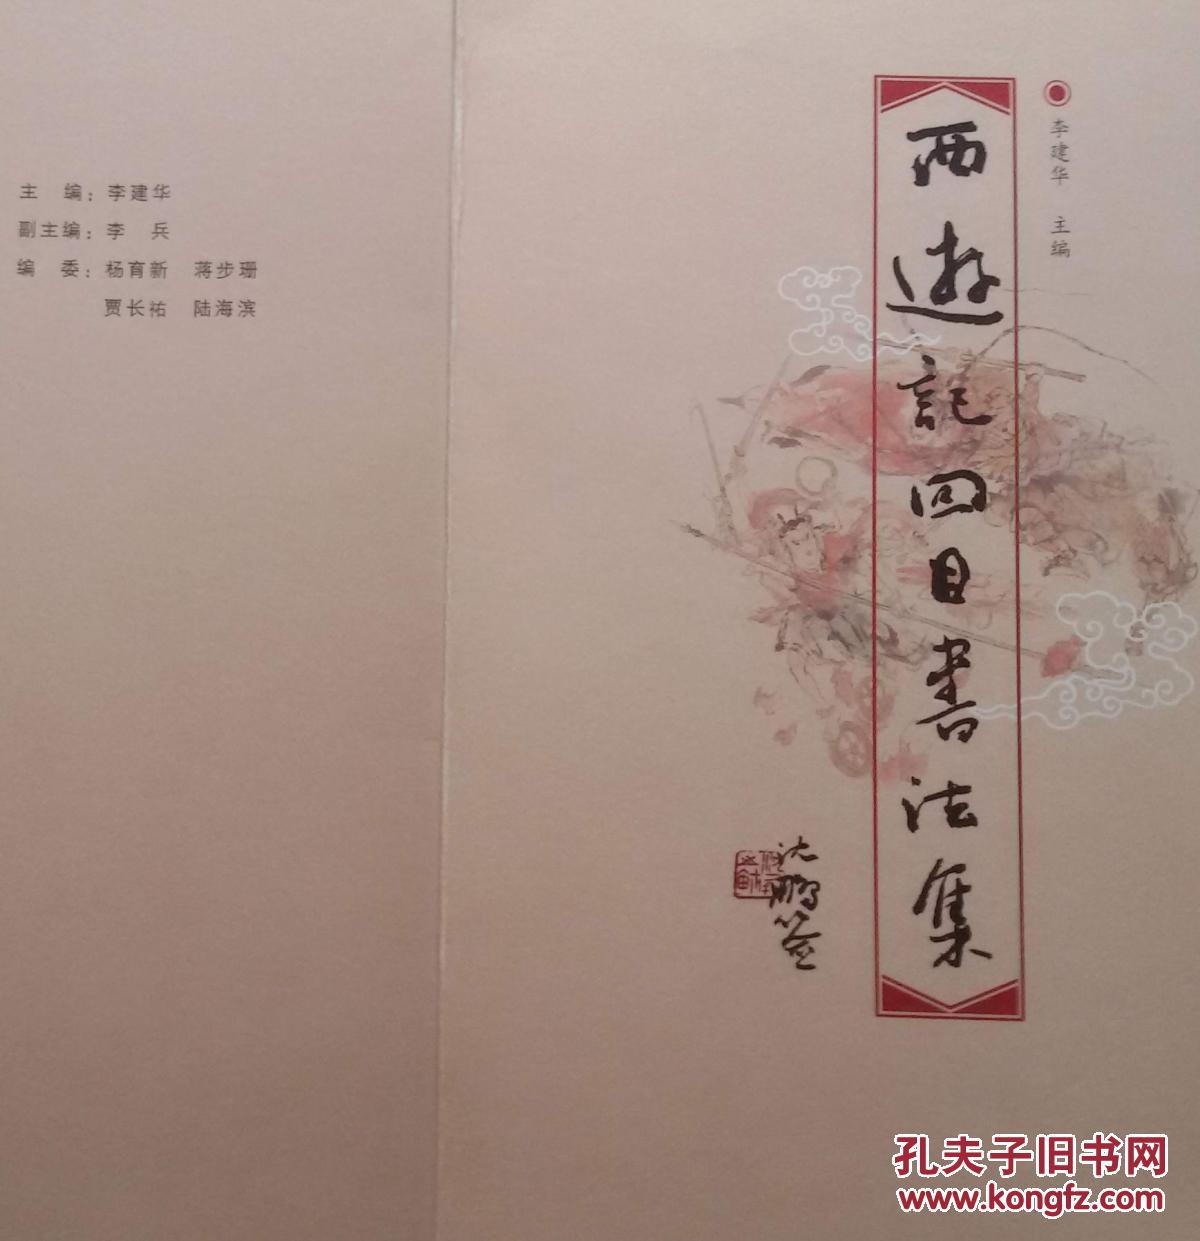 主 编：李建华
副主编：李 兵
编 委：杨育新 蒋步珊
贾长祐 陆海滨
李建华 主编
西遊記回目書法集
沈鹏签
孔夫子旧书网
www.kongfz.com